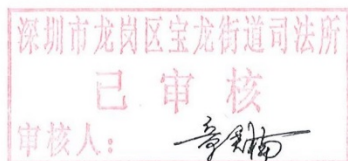 深圳市龙岗区宝龙街道司法所
已审核
审核人：